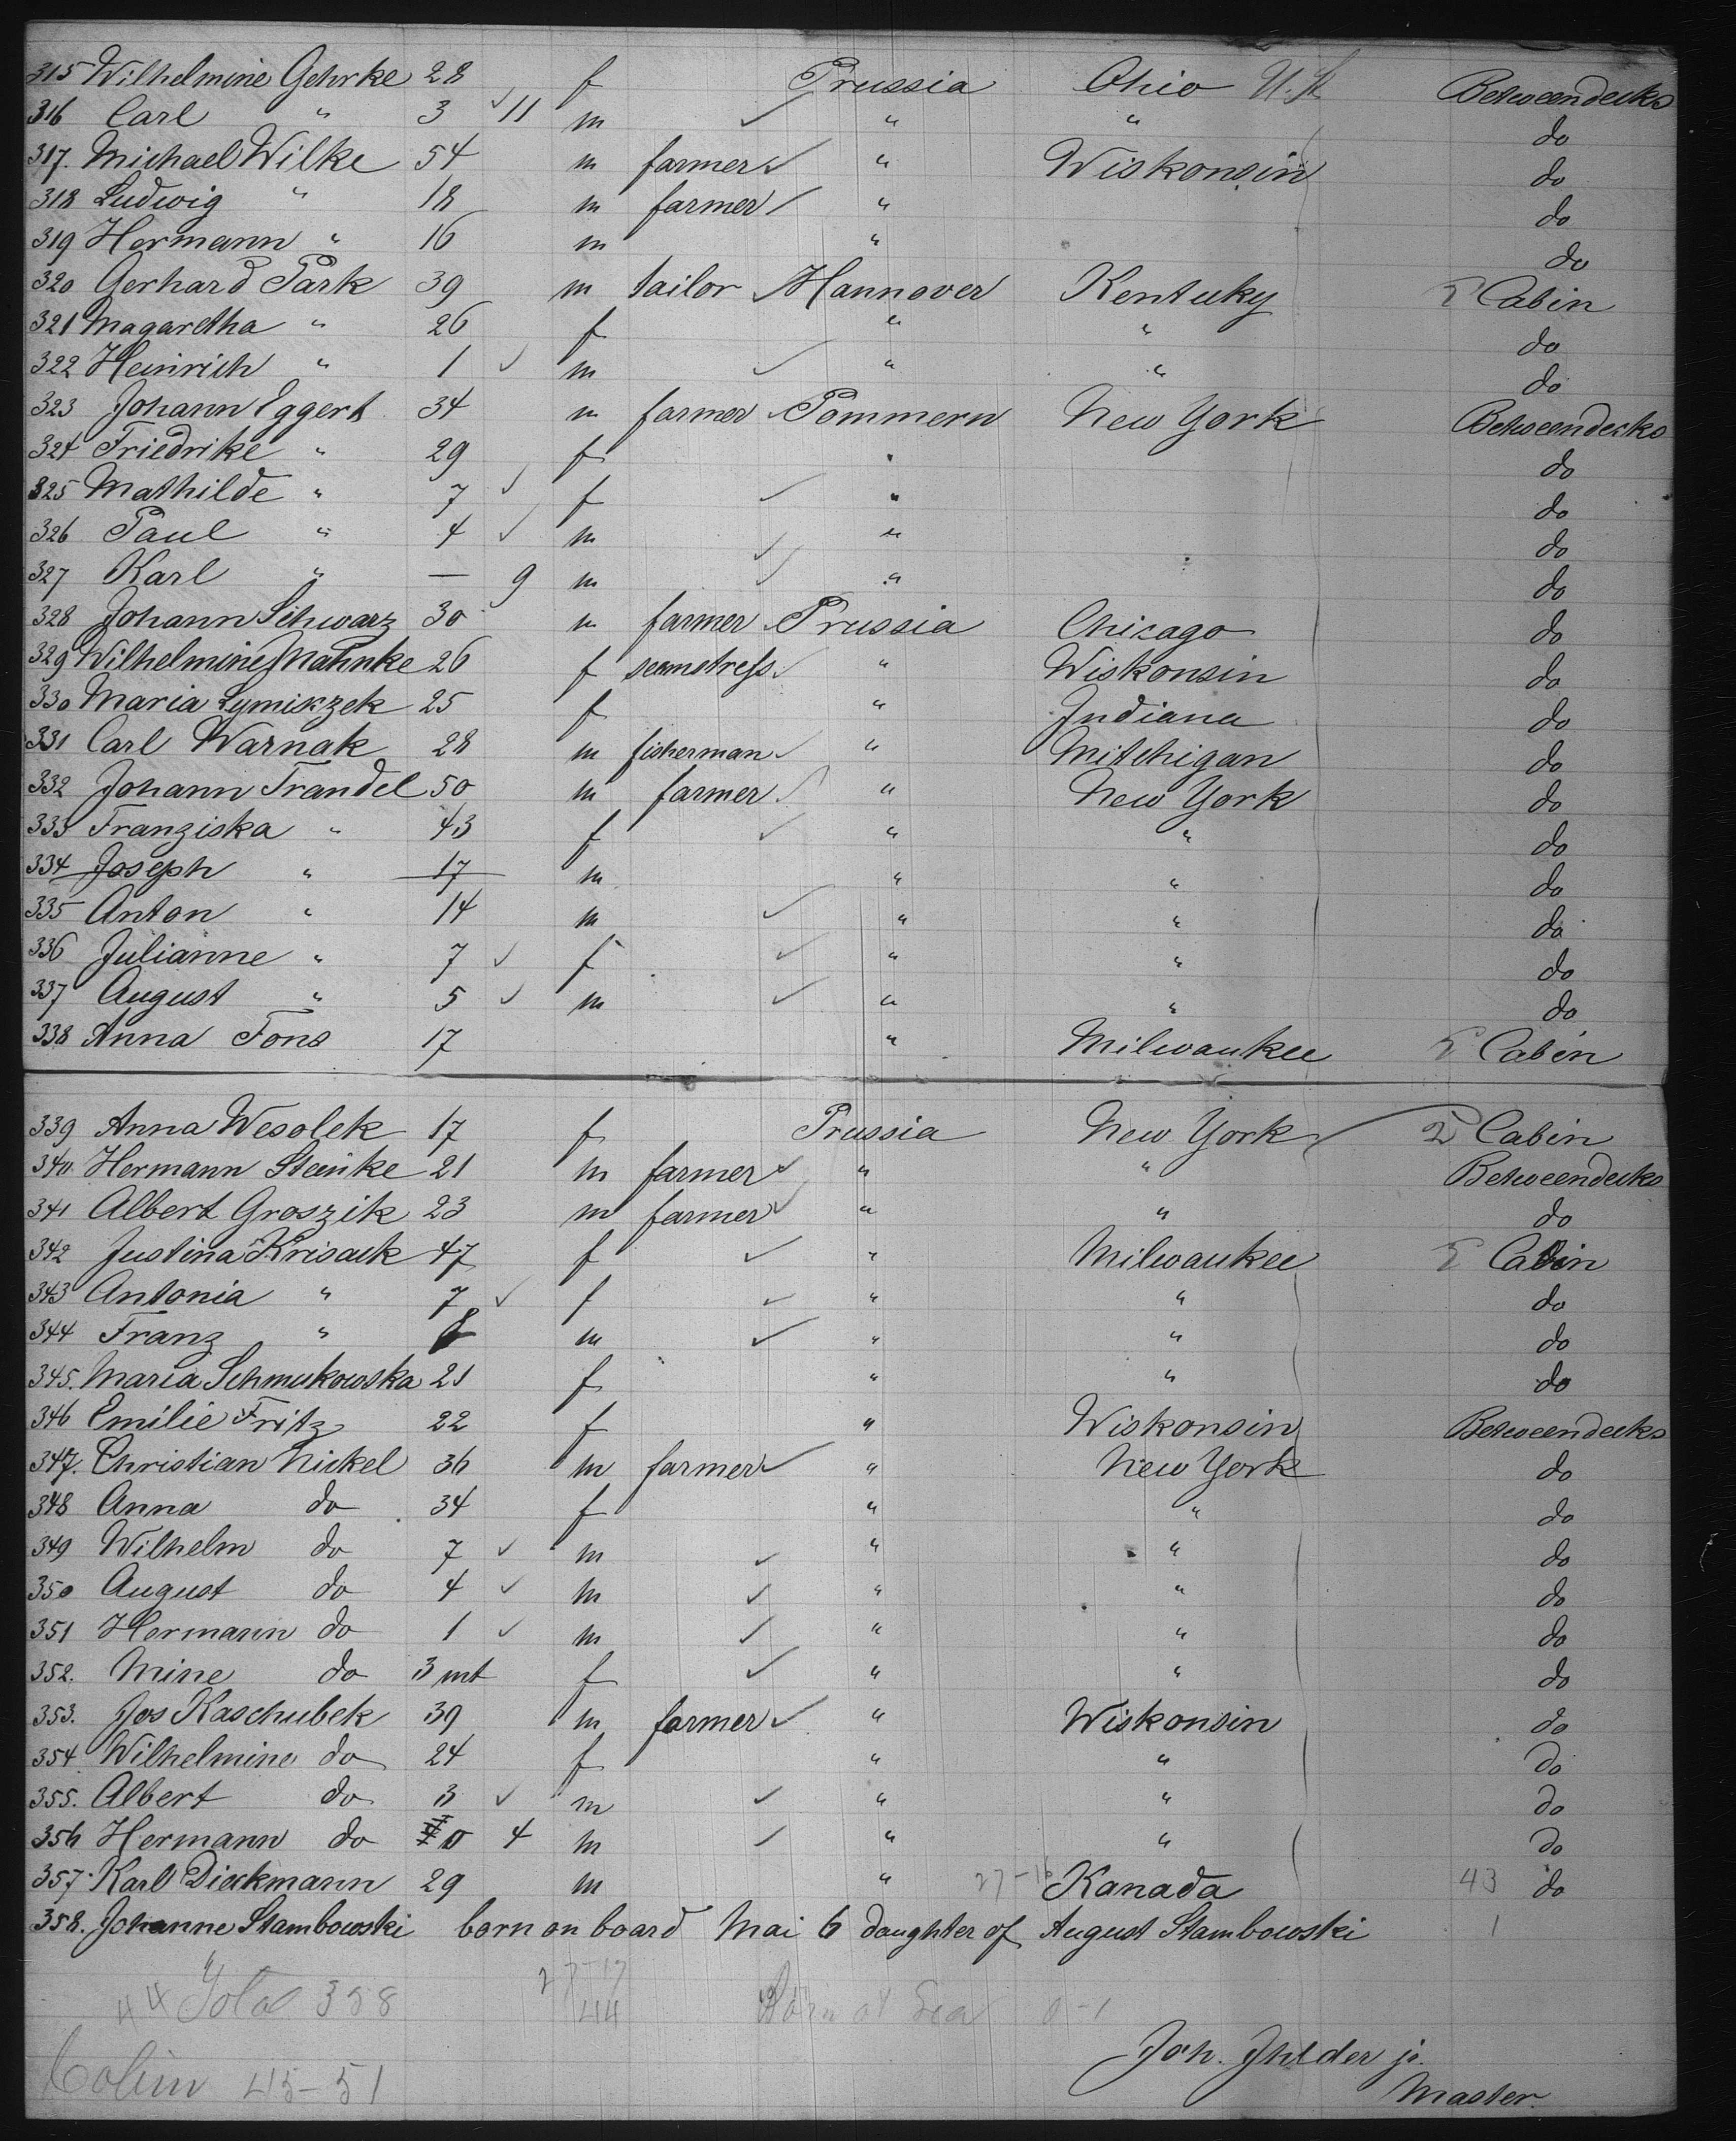 315 Wilhelmine Gehrke 28 f Prussia Ohio U. St. Betweendecks
316 Carl " 3 ✓ 11 m ✓ " " do
317. Michael Wilke 54 m farmer ✓ " Wiskonsin do
318 Ludwig " 18 m farmer / " do
319 Hermann " 16 m " do
320 Gerhard Park 39 m tailor ✓ Hannover Kentuky 2 Cabin
321 Magaretha " 26 f " " do
322 Heinrich " 1 ✓ m ✓ " " do
323 Johann Eggert 34 m farmer ✓ Pommern New York Betweendecks
324 Friedrike " 29 f " do
325 Mathilde " 7 ✓ f ✓ " do
326 Paul " 4 ✓ m ✓ " do
327 Karl " — 9 m ✓ " do
328 Johann Schwarz 30 m farmer ✓ Prussia Chicago do
329 Wilhelmine Mahnke 26 f seamstress ✓ " Wiskonsin do
330 Maria Lymiszek 25 f " Indiana do
331 Carl Warnak 28 m fisherman ✓ " Mitchigan do
332 Johann Trandel 50 m farmer ✓ " New York do
333 Franziska " 43 f ✓ " " do
334 Joseph " 17 m " " do
335 Anton " 14 m ✓ " " do
336 Julianne " 7 ✓ f ✓ " " do
337 August " 5 ✓ m ✓ " " do
338 Anna Fons 17 " Milwaukee 2 Cabin
339 Anna Wesolek 17 f Prussia New York 2 Cabin
340 Hermann Steinke 21 m farmer ✓ " " Betweendecks
341 Albert Groszik 23 m farmer ✓ " " do
342 Justina Krisack 47 f ✓ " Milwaukee 2 Cabin
343 Antonia " 7 ✓ f ✓ " " do
344 Franz " 8 m ✓ " " do
345. Maria Schmukowska 21 f " " do
346 Emilie Fritz 22 f " Wiskonsin Betweendecks
347. Christian Nickel 36 m farmer ✓ " New York do
348 Anna do 34 f " " do
349 Wilhelm do 7 ✓ m ✓ " " do
350 August do 4 ✓ m ✓ " " do
351 Hermann do 1 ✓ m ✓ " " do
352. Mine do 3 mt f ✓ " " do
353. Jos Kaschubek 39 m farmer ✓ " Wiskonsin do
354 Wilhelmine do 24 f " " do
355. Albert do 3 ✓ m ✓ " " do
356 Hermann do 0 4 m ✓ " " do
357. Karl Dieckmann 29 m " Kanada 43 do
358. Johanne Stambowski born on board Mai 6 daughter of August Stambowski 1
Total 358 27-17
44 Born at Sea 0-1
Joh. Ihlder jr.
Master.
45-51